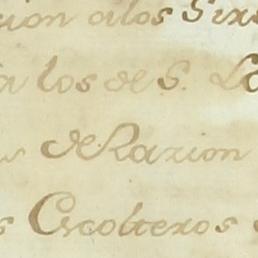 cion a los Sire
a los de S. Lo
de Razion
s Escolteros